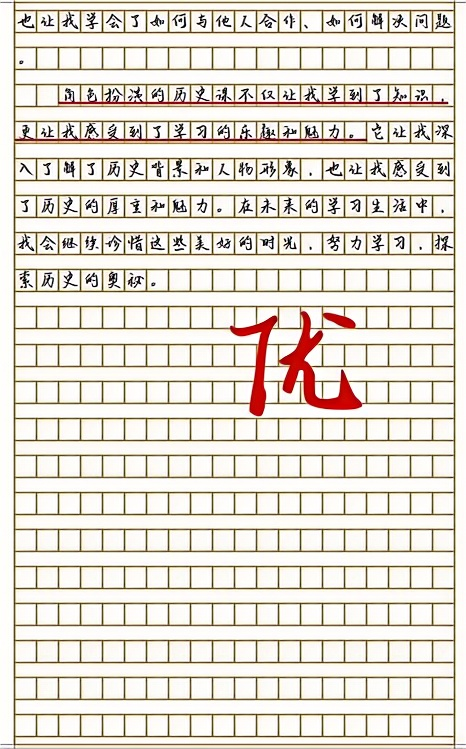 也让我学会了如何与他人合作、如何解决问题
。
角色扮演的历史课不仅让我学到了知识，
更让我感受到了学习的乐趣和魅力。它让我深
入了解了历史背景和人物形象，也让我感受到
了历史的厚重和魅力。在未来的学习生活中，
我会继续珍惜这些美好的时光，努力学习，探
索历史的奥秘。
优